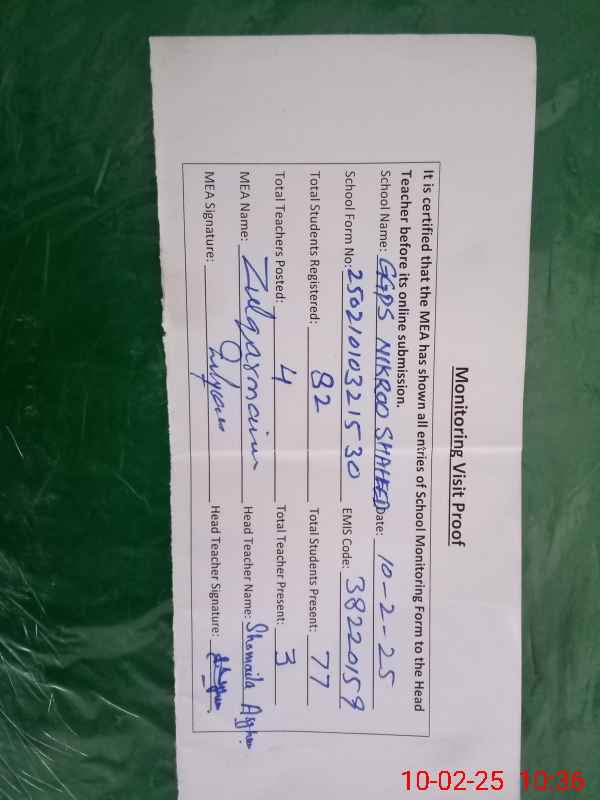 Monitoring Visit Proof
It is certified that the MEA has shown all entries of School Monitoring Form to the Head
Teacher before its online submission.
School Name: GGPS NIKROO SHAHEED Date: 10-2-25
School Form No: 25021010321530 EMIS Code: 38220159
Total Students Registered: 82 Total Students Present: 77
Total Teachers Posted: 4 Total Teacher Present: 3
MEA Name: Zulqarnain Head Teacher Name: Shomaila
MEA Signature: Head Teacher Signature:
10-02-25 10:36